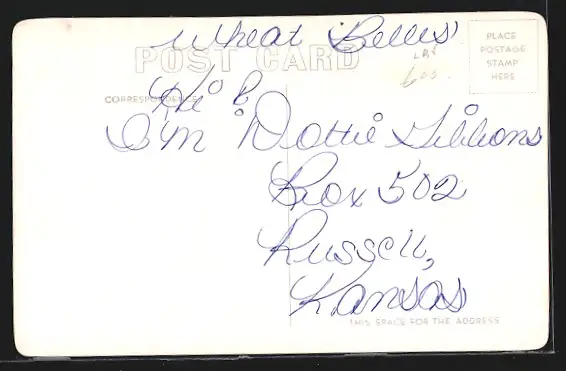 Wheat Belles
POST CARD
PLACE
POSTAGE
STAMP
HERE
600.
CORRESPONDENCE
Hi!
I'm Dottie Gibbons
Box 502
Russell,
Kansas
THIS SPACE FOR THE ADDRESS